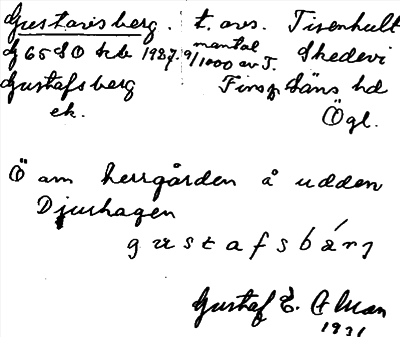 Gustavsberg. t. avs. Tisenhult
Jf 65 SO kb 1927. 9/1000 mantal av J. Skedevi
Gustafsberg Finsp. läns hd
ek. Ögl.
Ö om herrgården å udden
Djurhagen
gustafsbárj
Gustaf E. Alman
1931